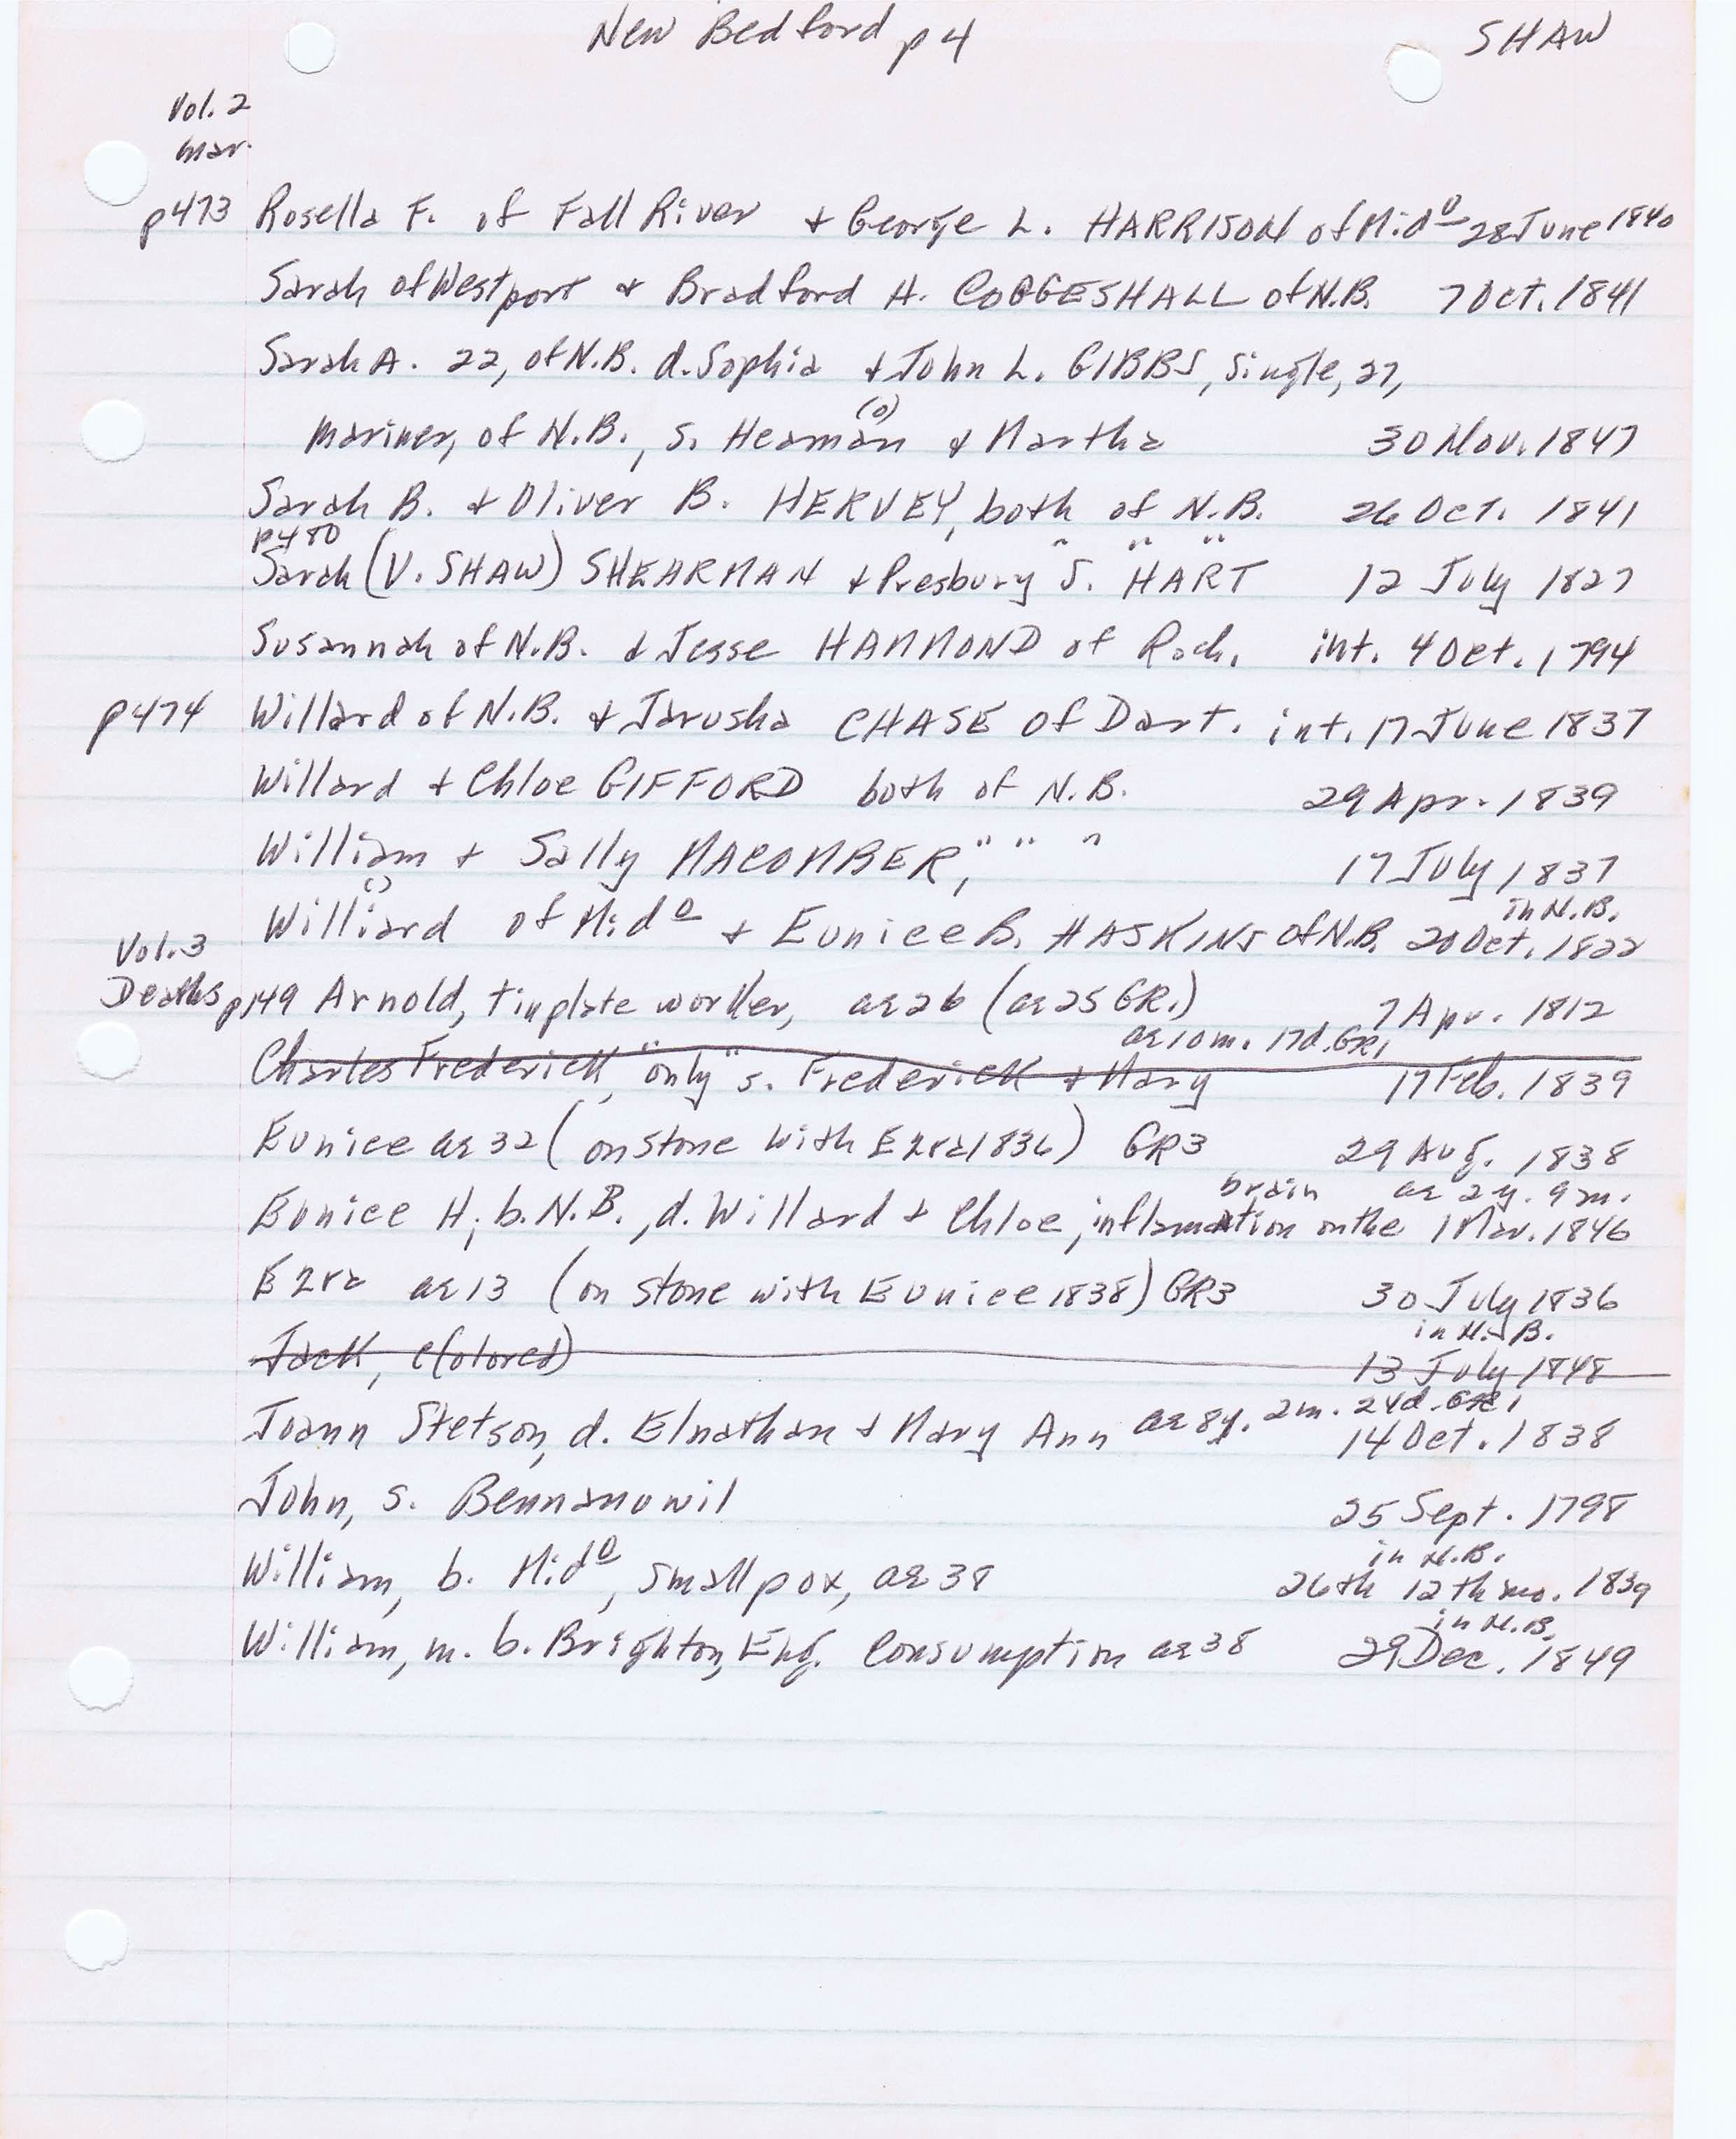 New Bedford p 4 SHAW
Vol. 2
mar.
p473 Rosella F. of Fall River + George L. HARRISON of Mid⁰ 28 June 1840
Sarah of Westport + Bradford H. COGGESHALL of N.B. 7 Oct. 1841
Sarah A. 22, of N.B. d. Sophia + John L. GIBBS, Single, 27,
(o)
mariner, of N.B., s. Heaman + Martha 30 Nov. 1847
Sarah B. + Oliver B. HERVEY, both of N.B. 26 Oct. 1841
p480 " " "
Sarah (V. SHAW) SHEARMAN + Presbury S. HART 12 July 1827
Susannah of N.B. + Jesse HAMMOND of Roch. int. 4 Oct. 1794
p474 Willard of N.B. + Jarusha CHASE of Dart. int. 17 June 1837
Willard + Chloe GIFFORD both of N.B. 29 Apr. 1839
William + Sally MACOMBER, " " " 17 July 1837
() in N.B.
Williard of Mid⁰ + Eunice B. HASKINS of N.B. 20 Oct. 1822
Vol. 3
Deaths p149 Arnold, tinplate worker, ae 26 (ae 25 GR1) 7 Apr. 1812
ae 10 m. 17 d. GR1
Charles Frederick, "only" s. Frederick + Mary 17 Feb. 1839
Eunice ae 32 (on stone with Ezra 1836) GR3 29 Aug. 1838
brain ae 2 y. 9 m.
Eunice H, b. N.B., d. Willard + Chloe, inflamation on the 1 Mar. 1846
Ezra ae 13 (on stone with Eunice 1838) GR3 30 July 1836
in N.B.
Jack, c(olored) 13 July 1848
Joann Stetson, d. Elnathan + Mary Ann ae 8 y. 2 m. 24 d. GR1
14 Oct. 1838
John, s. Bennanowil 25 Sept. 1798
in N.B.
William, b. Mid⁰, small pox, ae 38 26th 12th mo. 1839
in N.B.
William, m. b. Brighton, Eng. Consumption ae 38 29 Dec. 1849